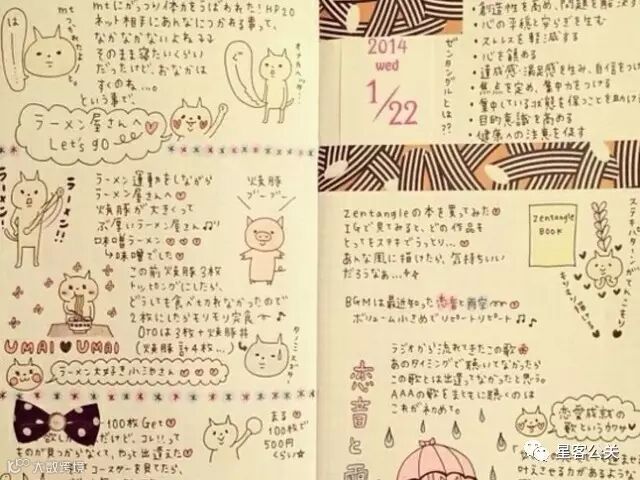 mt
つかれたよ…
は…
mtにがっつり体力をうばわれた!HP20
ネット相手にあんなにつかれる事って、
なかなかないよね 子子
そのまま寝たいくらい
だったけど、おなかは
すくのね…。
という事で、
オナカヘッター…
ラーメン屋さんへ
Let's go
ラーメン!!
ラーメン運動をしながら
ラーメン屋さんへ
焼豚が大きくって
ぶ厚いラーメン屋さん♪♪
味噌ラーメン
味噌でした
この前焼豚3枚
トッピングにしたら、
どうしても食べきれなかったので
2枚にしたらモリモリ完食
OTOは3枚+焼豚丼
(焼豚計4枚…)
焼豚
ブーブー
UMAI UMAI
ラーメン大好き小池さん
100枚Get
だけど、コレ!!って
ものが見つからなくて、やっと出逢えた
コースターを見てたら、
まる
100枚で
500円
くらい
2014
wed
1/22
ゼンタングルとは??
・創造性を高め、問題を解決す
・心の平穏と安らぎを生む
・ストレスを軽減する
・心を鎮める
・達成感・満足感を生み、自信をつけ
・焦点を定め、集中力をつける
・集中している状態を保つことを助ける
・目的意識を高める
・健康への注意を促す
Zentangleの本を買ってみた
IGで見てみると、どの作品も
とってもステキでうっとり…
あんな風に描けたら、気持ちいい
だろうなぁ…
Zentangle
BOOK
BGMは最近知った恋音と雨空
ボリューム小さめでリピートリピート♪♪
ラジオから流れてきたこの歌
あのタイミングで聴いてなかったら
この歌とは出逢ってなかったと思う。
AAAの歌をまともに聴くのは
これが初めて。
恋音と雨
恋愛成就の
歌というウワサ
叶えさせる力があるような
星客公关
大数跨境